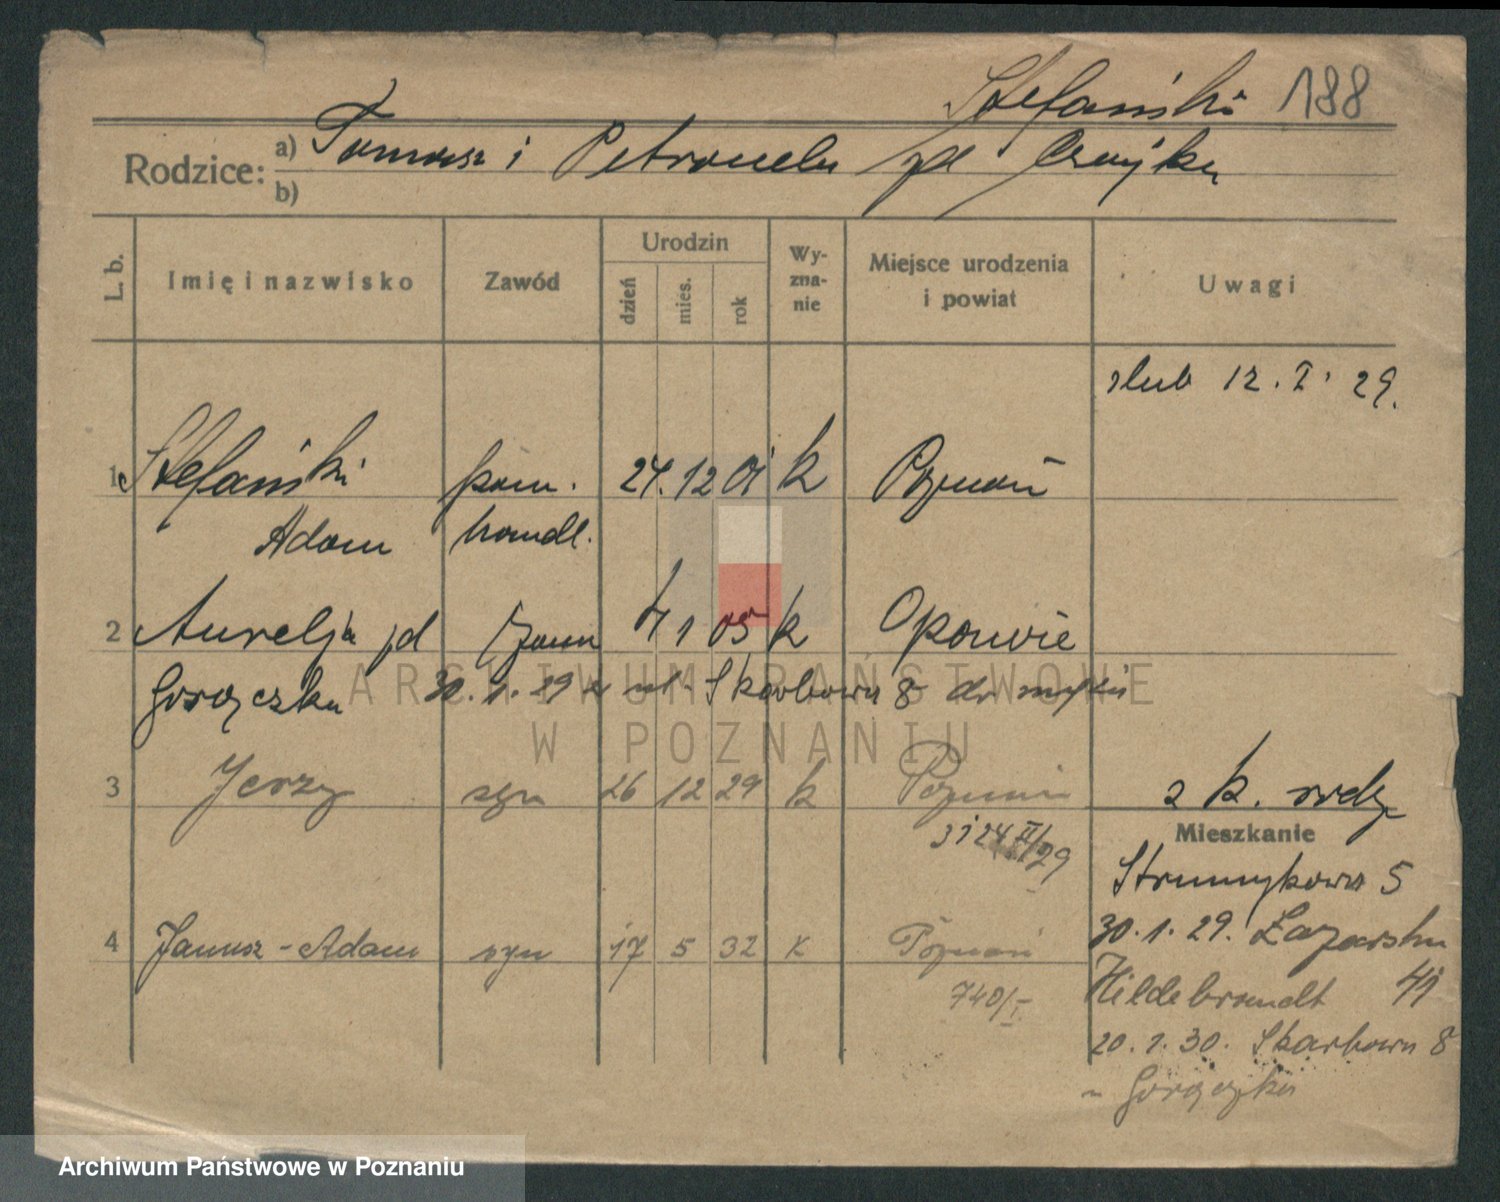 Stefański 188
Rodzice: a) Tomasz i Petronela zd Czajka
b)
L. b. Imię i nazwisko Zawód Urodzin dzień mies. rok Wyznanie Miejsce urodzenia i powiat Uwagi
ślub 12. I. 29.
1 Stefański pom. 24. 12 01 k Poznań
Adam handl.
2 Aurelja zd żona 4 1 05 k Opowie
Gorączka 30. 1. 29 z ul. Skarbowa 8 do męża
3 Jerzy syn 26 12 29 k Poznań z k. rodz
29
Mieszkanie
Strumykowa 5
30. 1. 29. Łazarska
4 Janusz - Adam syn 17 5 32 k Poznań
740/I Hildebrandt
20. 1. 30. Skarbowa 8
Gorączka
ARCHIWUM PAŃSTWOWE
W POZNANIU
Archiwum Państwowe w Poznaniu